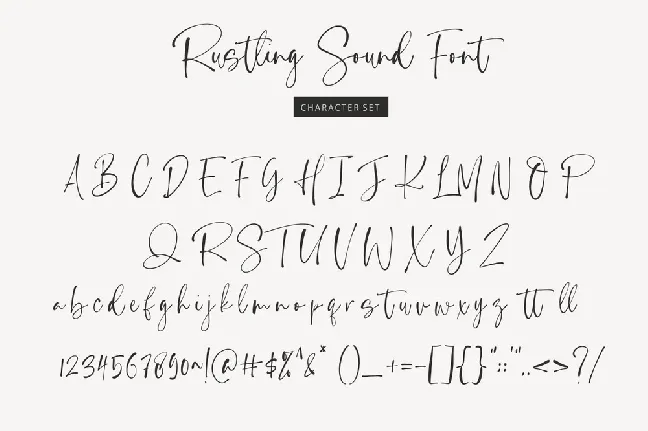 Rustling Sound Font
CHARACTER SET
A B C D E F G H I J K L M N O P
Q R S T U V W X Y Z
a b c d e f g h i j k l m n o p q r s t u v w x y z tt ll
1234567890~!@#$%^&* ()_+=-[]{}"::'"..<>?/